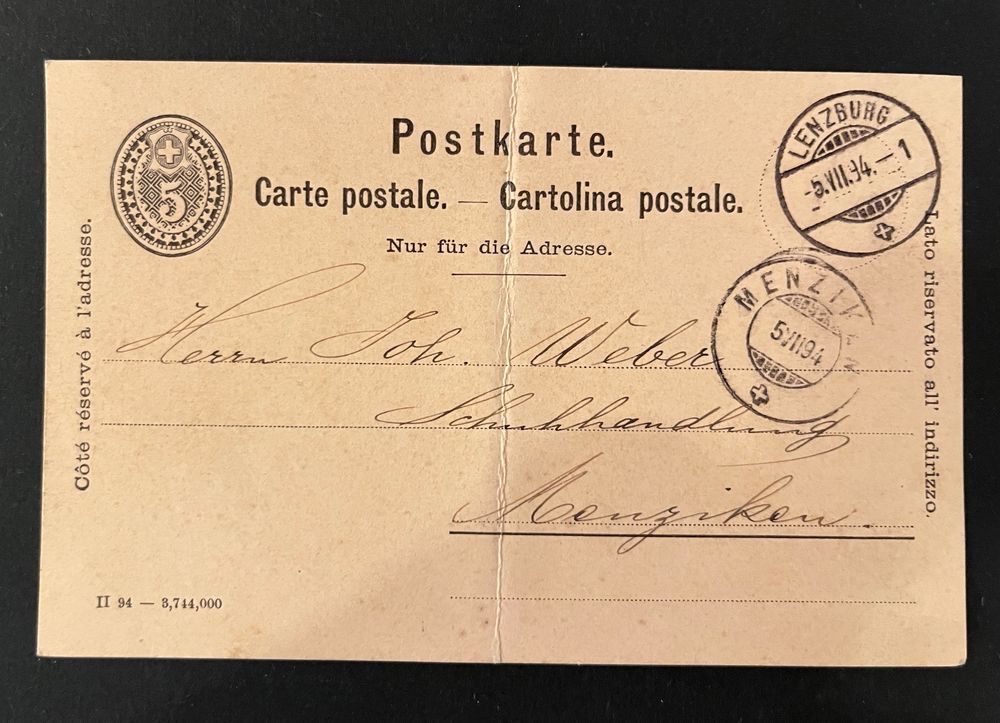 5
Postkarte.
Carte postale. — Cartolina postale.
Nur für die Adresse.
Côté réservé à l'adresse.
Lato riservato all' indirizzo.
LENZBURG
-5.VII.94.-1
MENZIKEN
5VII94
Herrn Joh. Weber
Schuhhandlung
Menziken.
II 94 — 3,744,000